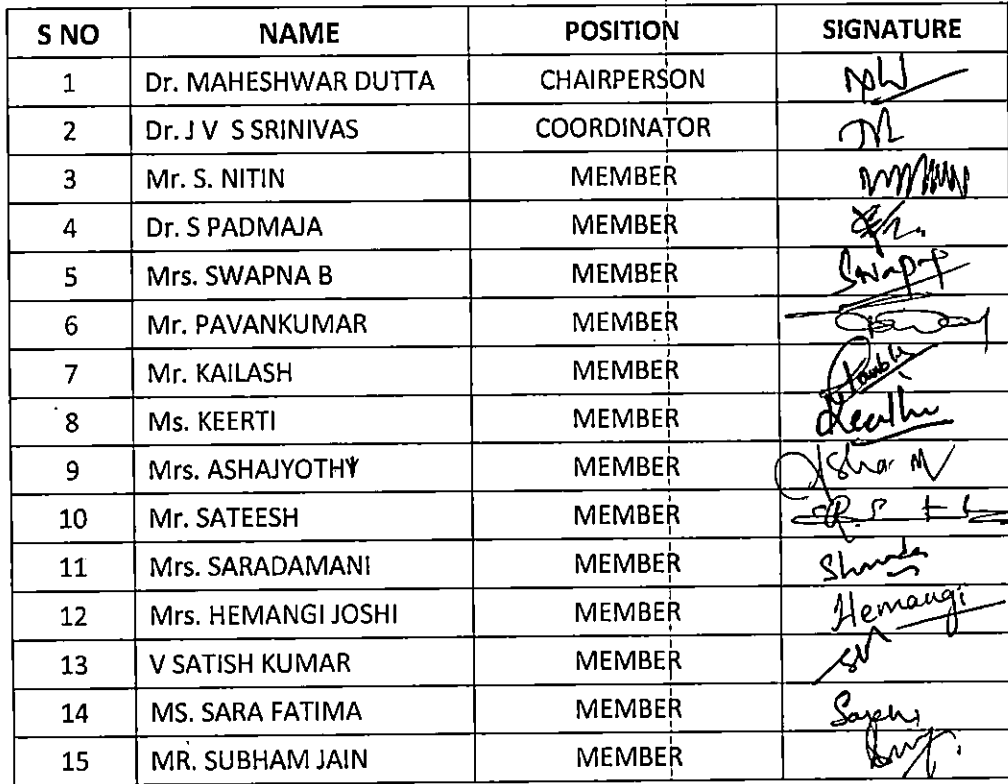 S NO NAME POSITION SIGNATURE
1 Dr. MAHESHWAR DUTTA CHAIRPERSON
2 Dr. J V S SRINIVAS COORDINATOR
3 Mr. S. NITIN MEMBER
4 Dr. S PADMAJA MEMBER
5 Mrs. SWAPNA B MEMBER Swapna
6 Mr. PAVANKUMAR MEMBER
7 Mr. KAILASH MEMBER
8 Ms. KEERTI MEMBER Keerthi
9 Mrs. ASHAJYOTHY MEMBER
10 Mr. SATEESH MEMBER
11 Mrs. SARADAMANI MEMBER
12 Mrs. HEMANGI JOSHI MEMBER Hemangi
13 V SATISH KUMAR MEMBER
14 MS. SARA FATIMA MEMBER
15 MR. SUBHAM JAIN MEMBER